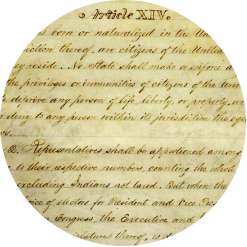 Article XIV.
born or naturalized in the Uni
diction thereof, are citizens of the United
they reside. No State shall make or enforce a
the privileges or immunities of citizens of the Uni
deprive any person of life, liberty, or property, wi
deny to any person within its jurisdiction the equ
2. Representatives shall be apportioned among
to their respective numbers, counting the whole
excluding Indians not taxed. But when the
choice of electors for President and Vice Pres
Congress, the Executive and
thereof, is d